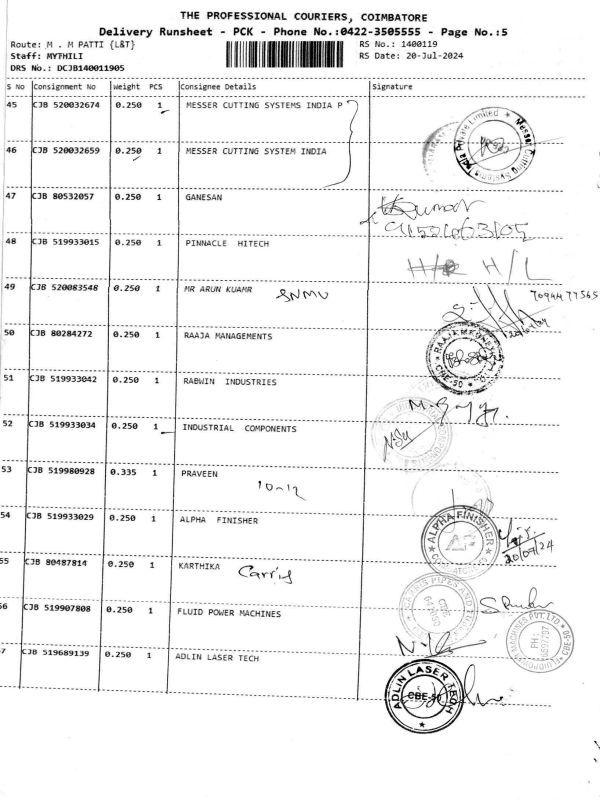 THE PROFESSIONAL COURIERS, COIMBATORE
Delivery Runsheet - PCK - Phone No.:0422-3505555 - Page No.:5
Route: M . M PATTI {L&T} RS No.: 1400119
Staff: MYTHILI RS Date: 20-Jul-2024
DRS No.: DCJB140011905
S No Consignment No Weight PCS Consignee Details Signature
45 CJB 520032674 0.250 1 MESSER CUTTING SYSTEMS INDIA P
46 CJB 520032659 0.250 1 MESSER CUTTING SYSTEM INDIA
47 CJB 80532057 0.250 1 GANESAN
Kumar
48 CJB 519933015 0.250 1 PINNACLE HITECH
H/L
49 CJB 520083548 0.250 1 MR ARUN KUAMR
SNMV
7094477565
50 CJB 80284272 0.250 1 RAAJA MANAGEMENTS
CBE-50
51 CJB 519933042 0.250 1 RABWIN INDUSTRIES
52 CJB 519933034 0.250 1 INDUSTRIAL COMPONENTS
53 CJB 519980928 0.335 1 PRAVEEN
10-12
54 CJB 519933029 0.250 1 ALPHA FINISHER
ALPHA FINISHER
20/07/24
55 CJB 80487814 0.250 1 KARTHIKA
56 CJB 519907808 0.250 1 FLUID POWER MACHINES
7 CJB 519689139 0.250 1 ADLIN LASER TECH
ADLIN LASER TECH
CBE-50